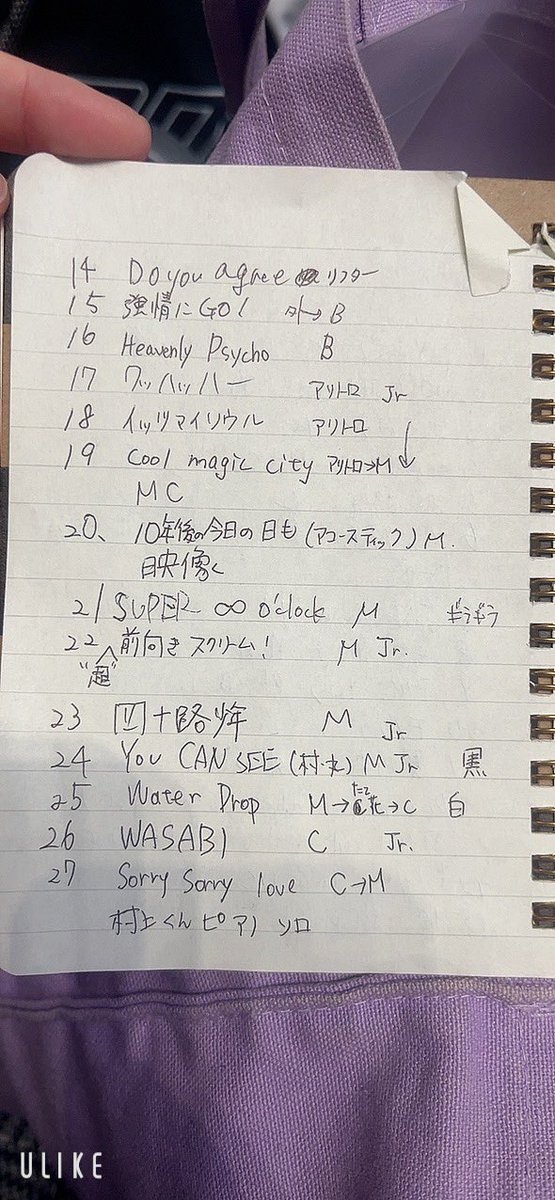 14 Do you agree リフター
15 強情にGO! 外→B
16 Heavenly Psycho B
17 ワッハッハー アリトロ Jr
18 イッツマイソウル アリトロ ↓
19 Cool magic city アリトロ→M
MC
20、 10年後の今日の日も (アコースティック) M.
映像く
21 SUPER ∞ o'clock M ギラギラ
22 前向きスクリーム! M Jr.
"超"
23 四十路少年 M Jr
24 You CAN SEE (村・丸) M Jr 黒
25 Water Drop M→花→C 白
たて
26 WASABI C Jr.
27 Sorry Sorry love C→M
村上くんピアノ ソロ
ULIKE